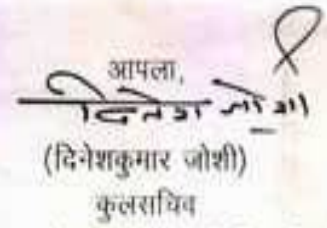 आपला,
दिनेश जोशी
(दिनेशकुमार जोशी)
कुलसचिव